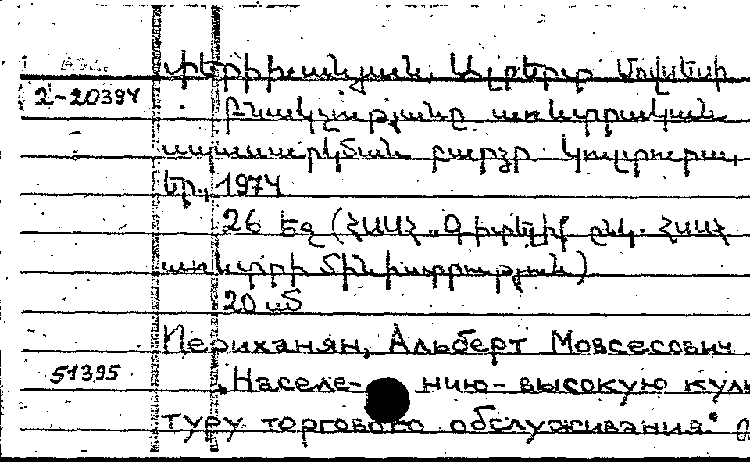 Փերիխանյան, Ալբերտ Մովսեսի
2-20394
Բնակչությանը առևտրական
սպասարկման բարձր կուլտուրա,
Եր., 1974
26 եջ (ՀՍՍՀ „Գիտելիք ընկ. ՀՍՍՀ
առևտրի մինիստրություն)
20 սմ
Периханян, Альберт Мовсесович
51395
„Населе- нию-высокую куль
туру торгового обслуживания"